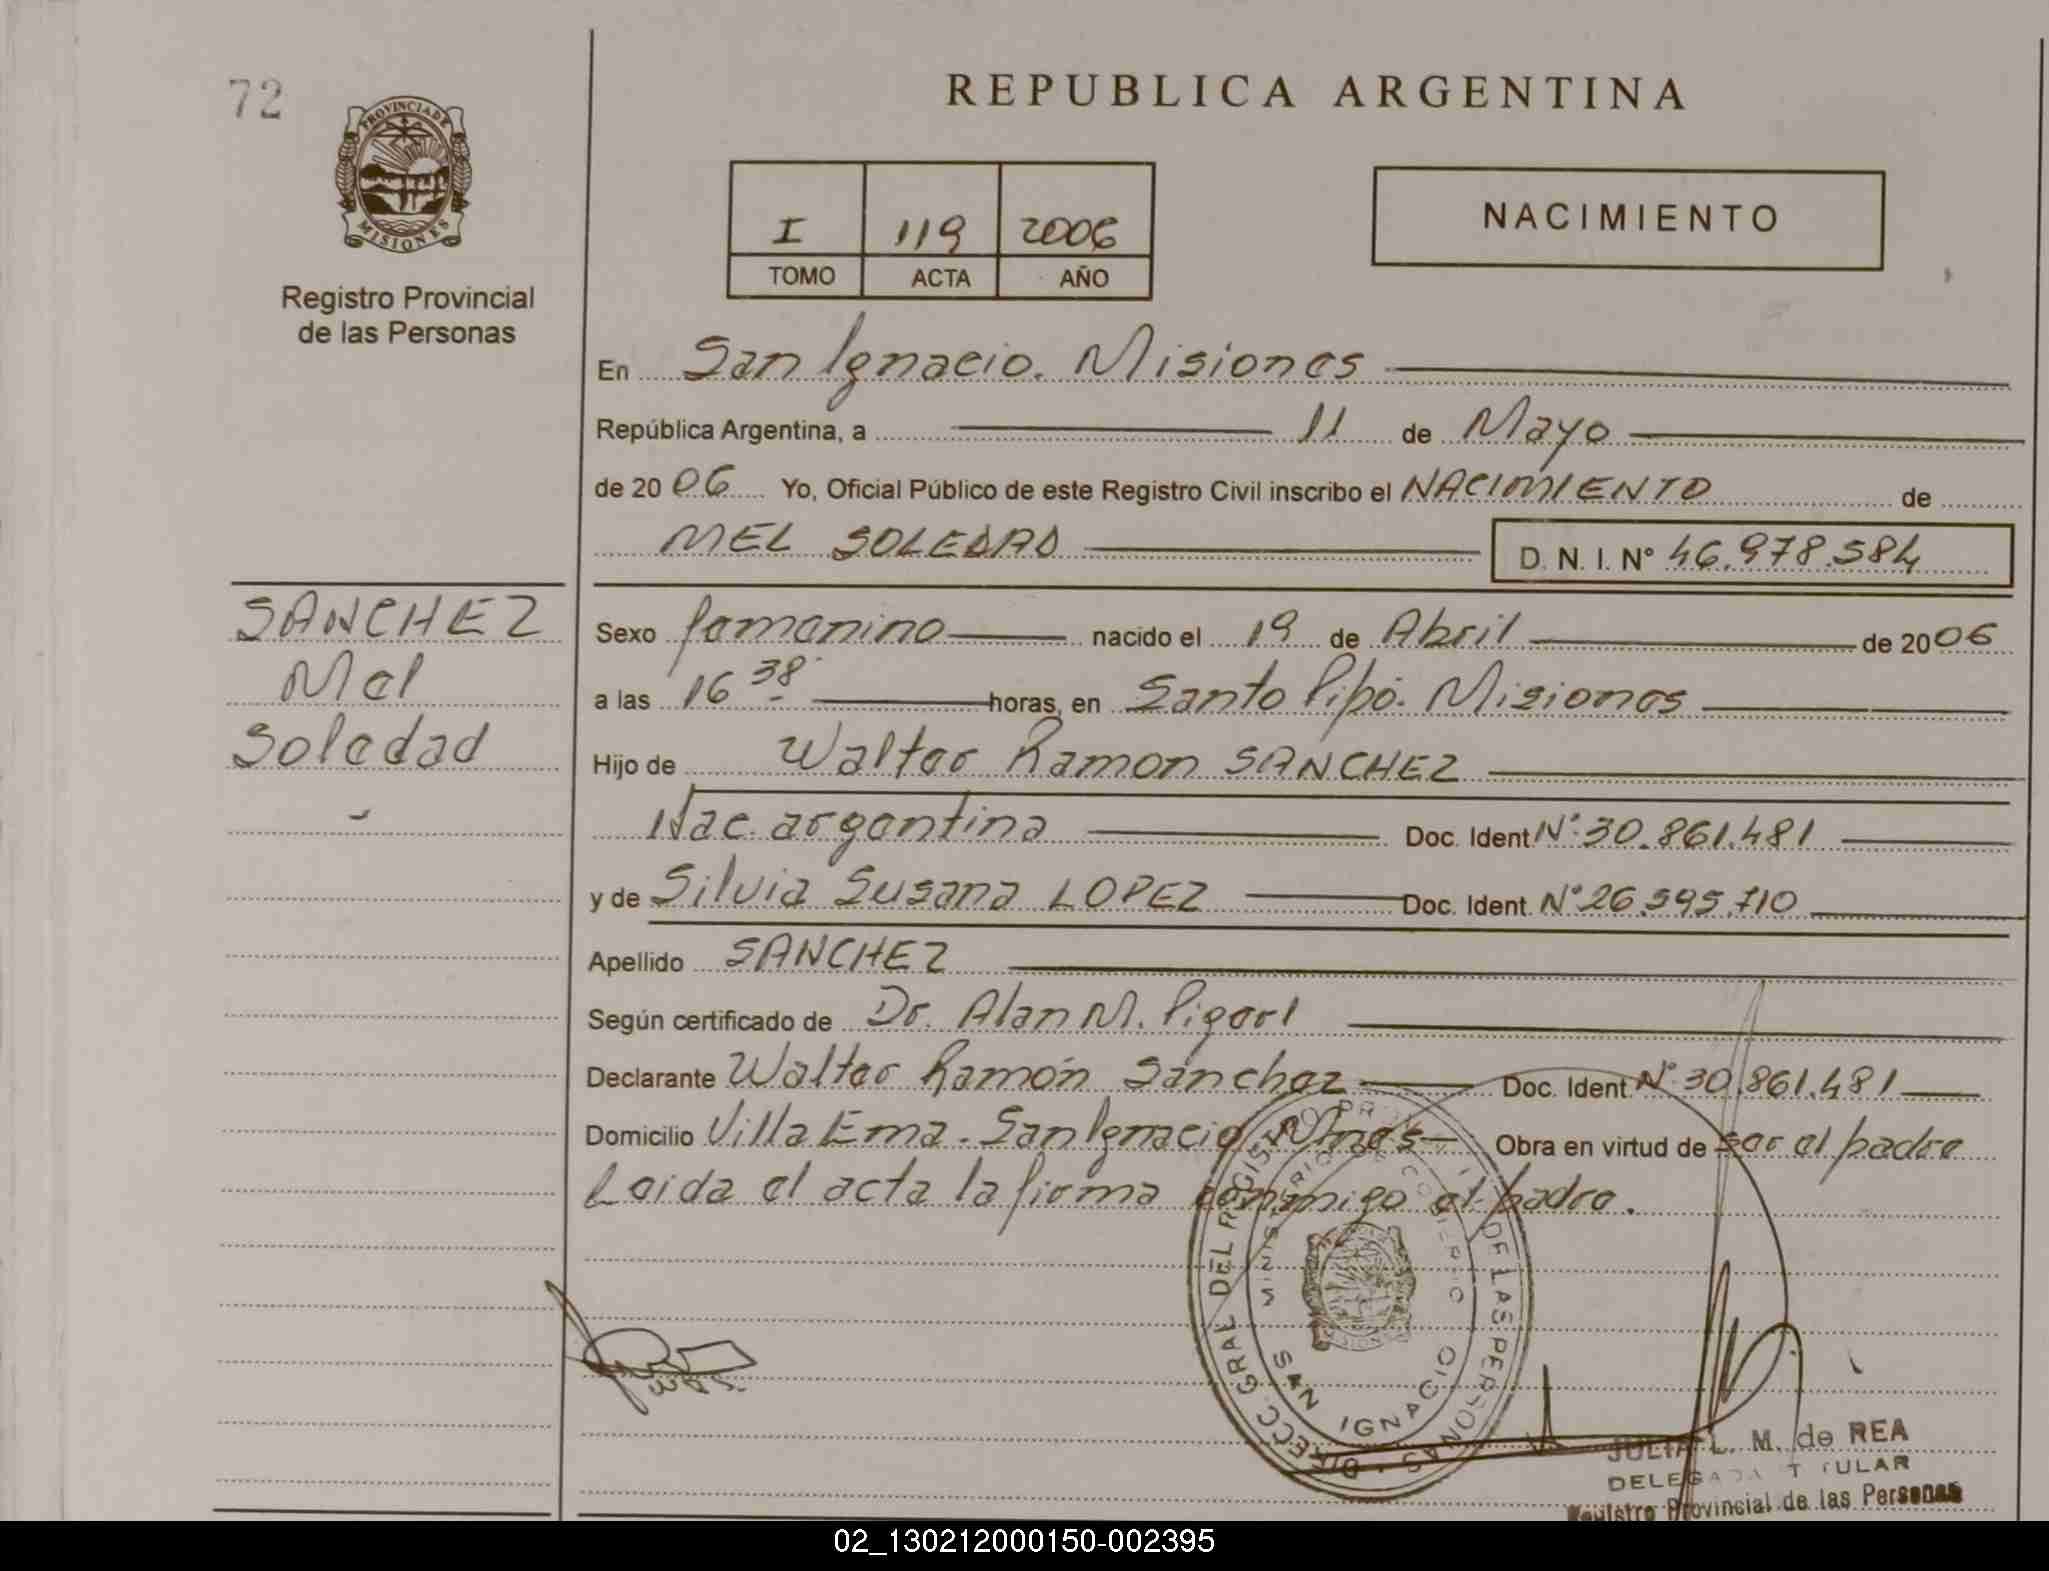 72
PROVINCIA DE
MISIONES
Registro Provincial
de las Personas
REPUBLICA ARGENTINA
I 119 2006
TOMO ACTA AÑO
NACIMIENTO
En San Ignacio. Misiones
República Argentina, a 11 de Mayo
de 2006 Yo, Oficial Público de este Registro Civil inscribo el NACIMIENTO de
MEL SOLEDAD D. N. I. N° 46.978.584
SANCHEZ
Mel
Soledad
Sexo femenino nacido el 19 de Abril de 2006
a las 16 38 horas, en Santo Pipó. Misiones
Hijo de Walter Ramon SANCHEZ
Nac. argentina Doc. Ident N° 30.861.481
y de Silvia Susana LOPEZ Doc. Ident. N° 26.595.710
Apellido SANCHEZ
Según certificado de Dr. Alan M.
Declarante Walter Ramón Sánchez Doc. Ident. N° 30.861.481
Domicilio Villa Ema. San Ignacio Mnes Obra en virtud de ser el padre
Leida el acta la firma conmigo el padre.
DIRECC. GRAL DEL REGISTRO PROV. DE LAS PERSONAS
MINISTERIO DE GOBIERNO
SAN IGNACIO
JULIA L. M. de REA
DELEGADA TITULAR
Registro Provincial de las Personas
02_130212000150-002395